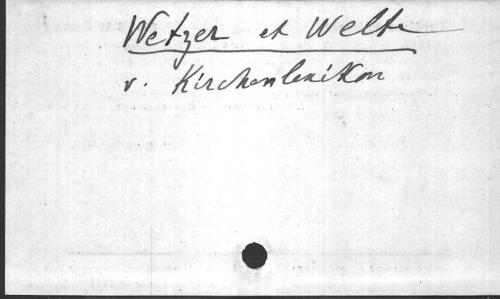 Wetzer et Welte
v. Kirchenlexikon